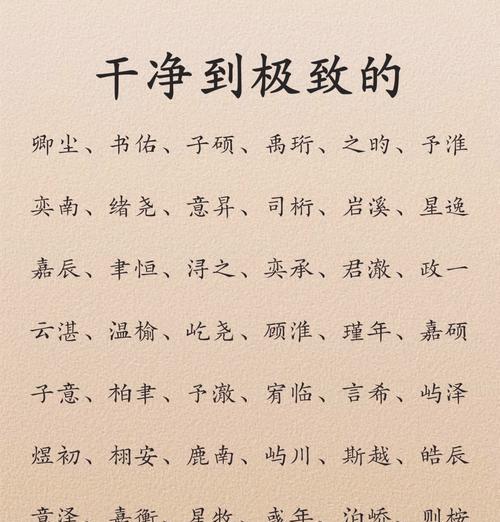 干净到极致的
卿尘、书佑、子硕、禹珩、之昀、予淮
奕南、绪尧、意昇、司桁、岩溪、星逸
嘉辰、聿恒、浔之、奕承、君澈、政一
云湛、温榆、屹尧、顾淮、瑾年、嘉硕
子意、柏聿、予澈、宥临、言希、屿泽
煜初、栩安、鹿南、屿川、斯越、皓辰
意泽、嘉衡、星牧、彧年、泊峤、则桉